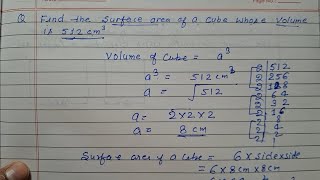 Q Find the surface area of a cube whose volume
is 512 cm³
Volume of cube = a³
a³ = 512 cm³
a = √512
a = 2×2×2
a = 8 cm
2 512
2 256
2 128
2 64
2 32
2 16
2 8
2 4
2
Surface area of a cube = 6×side×side
= 6×8cm×8cm